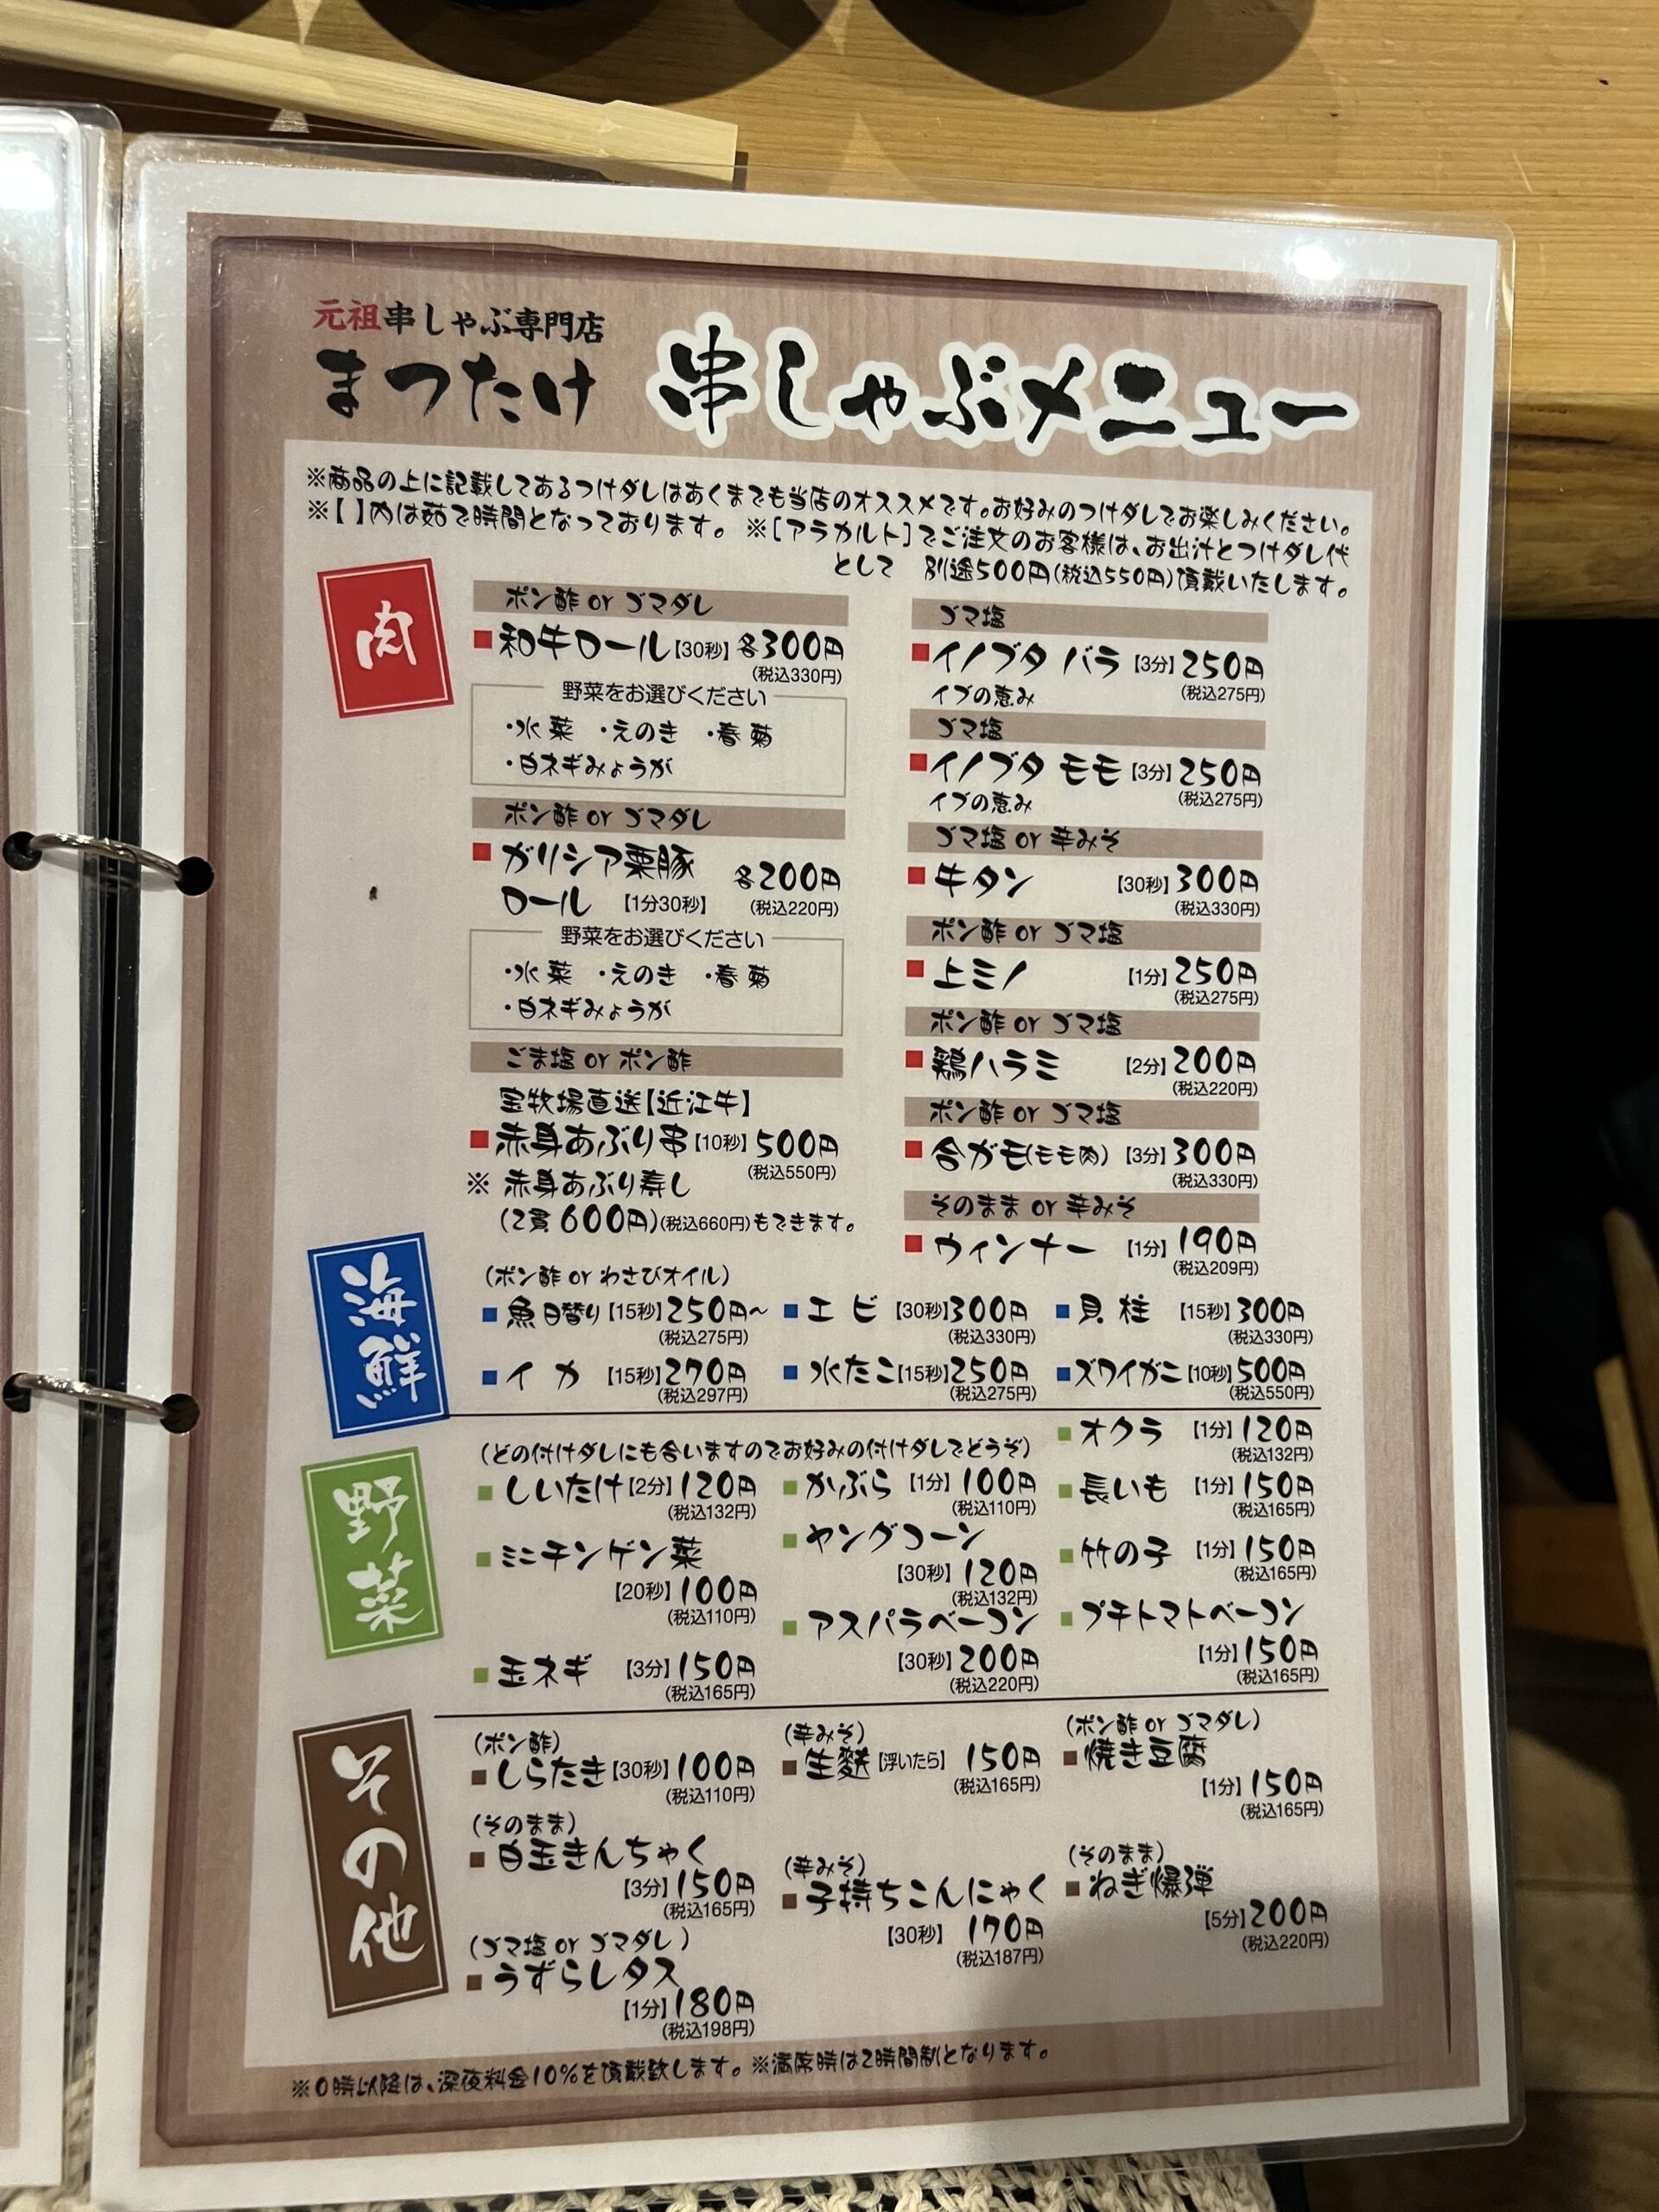 元祖串しゃぶ専門店
まつたけ 串しゃぶメニュー
※商品の上に記載してあるつけダレはあくまでも当店のオススメです。お好みのつけダレでお楽しみください。
※【 】内は茹で時間となっております。 ※[アラカルト]でご注文のお客様は、お出汁とつけダレ代
として 別途500円(税込550円)頂戴いたします。
肉
ポン酢 or ゴマダレ
■和牛ロール【30秒】各300円
(税込330円)
野菜をお選びください
・水菜 ・えのき ・春菊
・白ネギみょうが
ポン酢 or ゴマダレ
■ガリシア栗豚
ロール 【1分30秒】 各200円
(税込220円)
野菜をお選びください
・水菜 ・えのき ・春菊
・白ネギみょうが
ごま塩 or ポン酢
宝牧場直送【近江牛】
■赤身あぶり串【10秒】500円
(税込550円)
※ 赤身あぶり寿し
(2貫600円)(税込660円)もできます。
ゴマ塩
■イノブタ バラ【3分】250円
イブの恵み (税込275円)
ゴマ塩
■イノブタ モモ【3分】250円
イブの恵み (税込275円)
ゴマ塩 or 辛みそ
■牛タン 【30秒】300円
(税込330円)
ポン酢 or ゴマ塩
■上ミノ 【1分】250円
(税込275円)
ポン酢 or ゴマ塩
■鶏ハラミ 【2分】200円
(税込220円)
ポン酢 or ゴマ塩
■合ガモ(モモ肉) 【3分】300円
(税込330円)
そのまま or 辛みそ
■ウィンナー 【1分】190円
(税込209円)
海鮮
(ポン酢 or わさびオイル)
■魚日替り【15秒】250円～ ■エビ 【30秒】300円 ■貝柱 【15秒】300円
(税込275円) (税込330円) (税込330円)
■イカ 【15秒】270円 ■水たこ【15秒】250円 ■ズワイガニ【10秒】500円
(税込297円) (税込275円) (税込550円)
野菜
(どの付けダレにも合いますのでお好みの付けダレでどうぞ)
■しいたけ【2分】120円
(税込132円)
■ミニチンゲン菜
【20秒】100円
(税込110円)
■玉ネギ 【3分】150円
(税込165円)
■かぶら 【1分】100円
(税込110円)
■ヤングコーン
【30秒】120円
(税込132円)
■アスパラベーコン
【30秒】200円
(税込220円)
■オクラ 【1分】120円
(税込132円)
■長いも 【1分】150円
(税込165円)
■竹の子 【1分】150円
(税込165円)
■プチトマトベーコン
【1分】150円
(税込165円)
その他
(ポン酢)
■しらたき【30秒】100円
(税込110円)
(そのまま)
■白玉きんちゃく
【3分】150円
(税込165円)
(ゴマ塩 or ゴマダレ)
■うずらレタス
【1分】180円
(税込198円)
(辛みそ)
■生麩【浮いたら】 150円
(税込165円)
(辛みそ)
■子持ちこんにゃく
【30秒】 170円
(税込187円)
(ポン酢 or ゴマダレ)
■焼き豆腐
【1分】150円
(税込165円)
(そのまま)
■ねぎ爆弾
【5分】200円
(税込220円)
※0時以降は、深夜料金10%を頂戴致します。※満席時は2時間制となります。